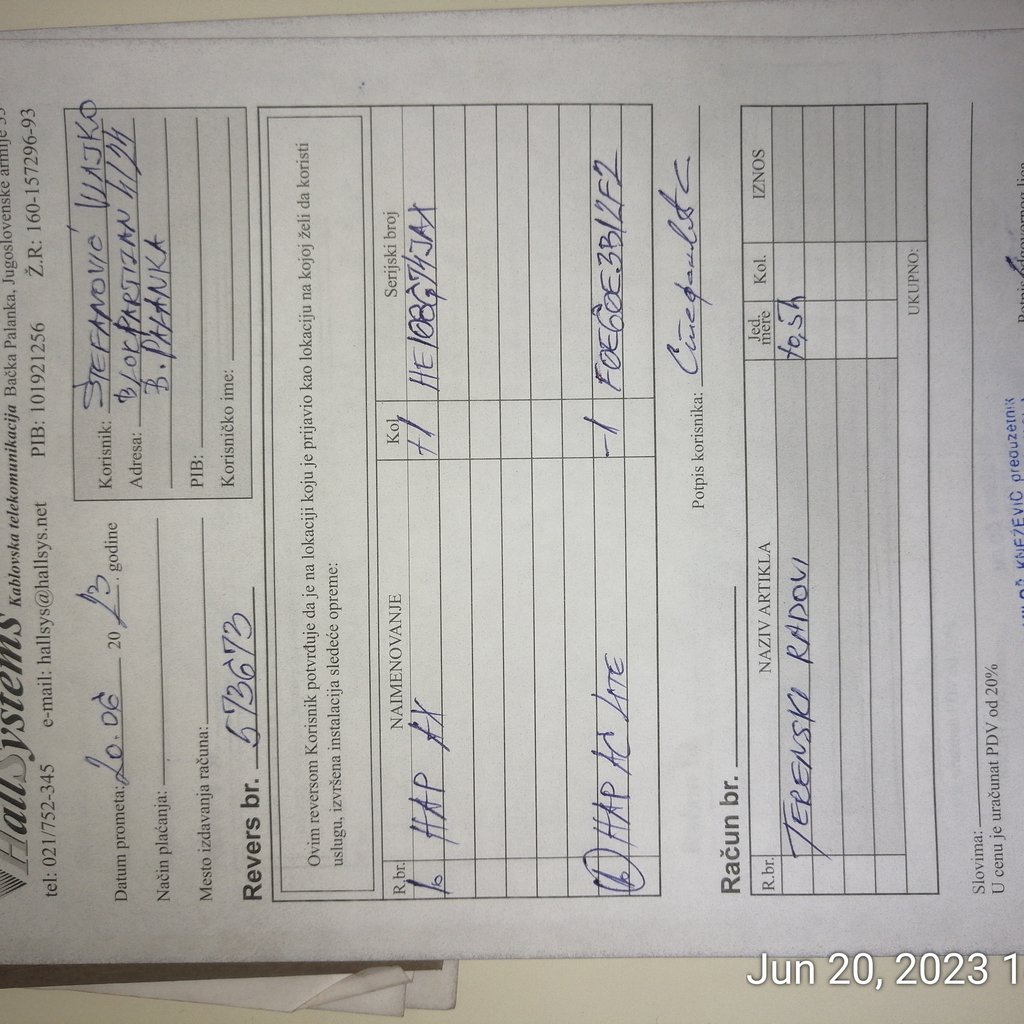 HallSystems Kablovska telekomunikacija Bačka Palanka, Jugoslovenske armije
tel: 021/752-345 e-mail: hallsys@hallsys.net PIB: 101921256 Ž.R: 160-157296-93
Datum prometa: 20.06 2023. godine
Način plaćanja:
Mesto izdavanja računa:
Korisnik: STEFANOVIĆ VLAJKO
Adresa: BLOK PARTIZAN 4/24
B. PALANKA
PIB:
Korisničko ime:
Revers br. 573673
Ovim reversom Korisnik potvrđuje da je na lokaciji koju je prijavio kao lokaciju na kojoj želi da koristi
uslugu, izvršena instalacija sledeće opreme:
R.br. NAIMENOVANJE Kol. Serijski broj
1. HAP AX +1
HAP AC LITE -1
Potpis korisnika:
Račun br.
R.br. NAZIV ARTIKLA Jed. mere Kol. IZNOS
TERENSKI RADOVI
UKUPNO:
Slovima:
U cenu je uračunat PDV od 20%
KNEŽEVIĆ preduzetnik
Jun 20, 2023 1